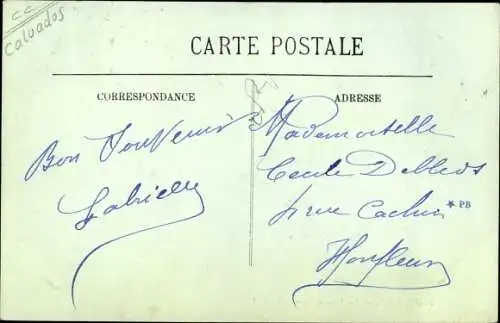 CC
Calvados
CARTE POSTALE
CORRESPONDANCE
ADRESSE
Bon Souvenir
Gabrielle
Mademoiselle
Cécile
rue Cachin
* PB
Honfleur